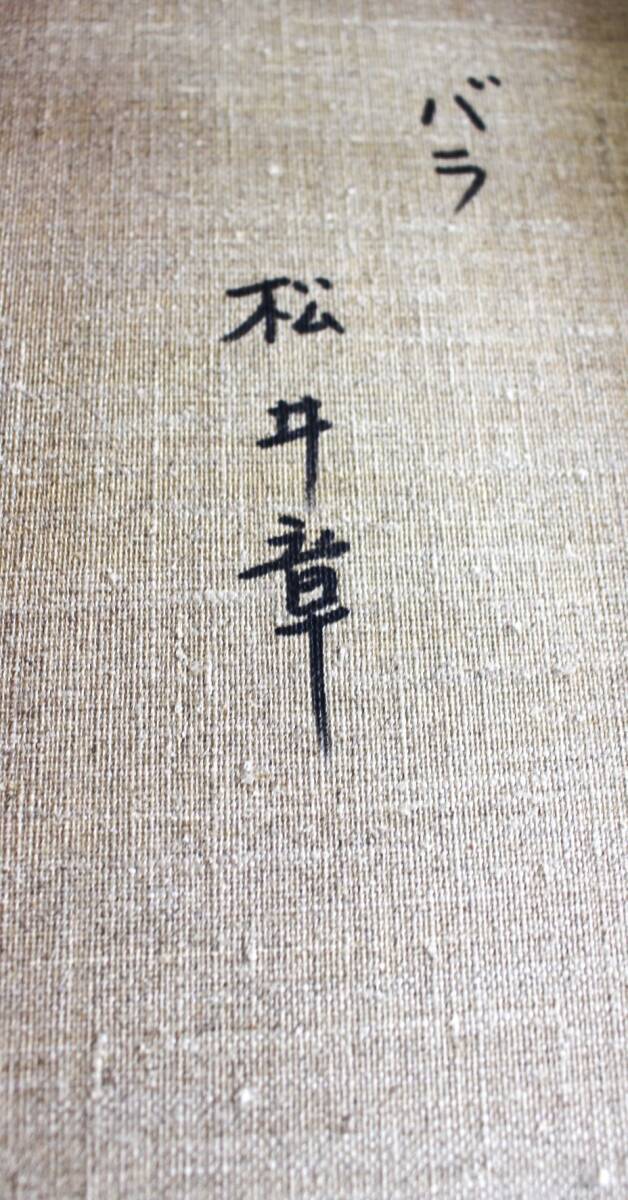 バラ
松井章